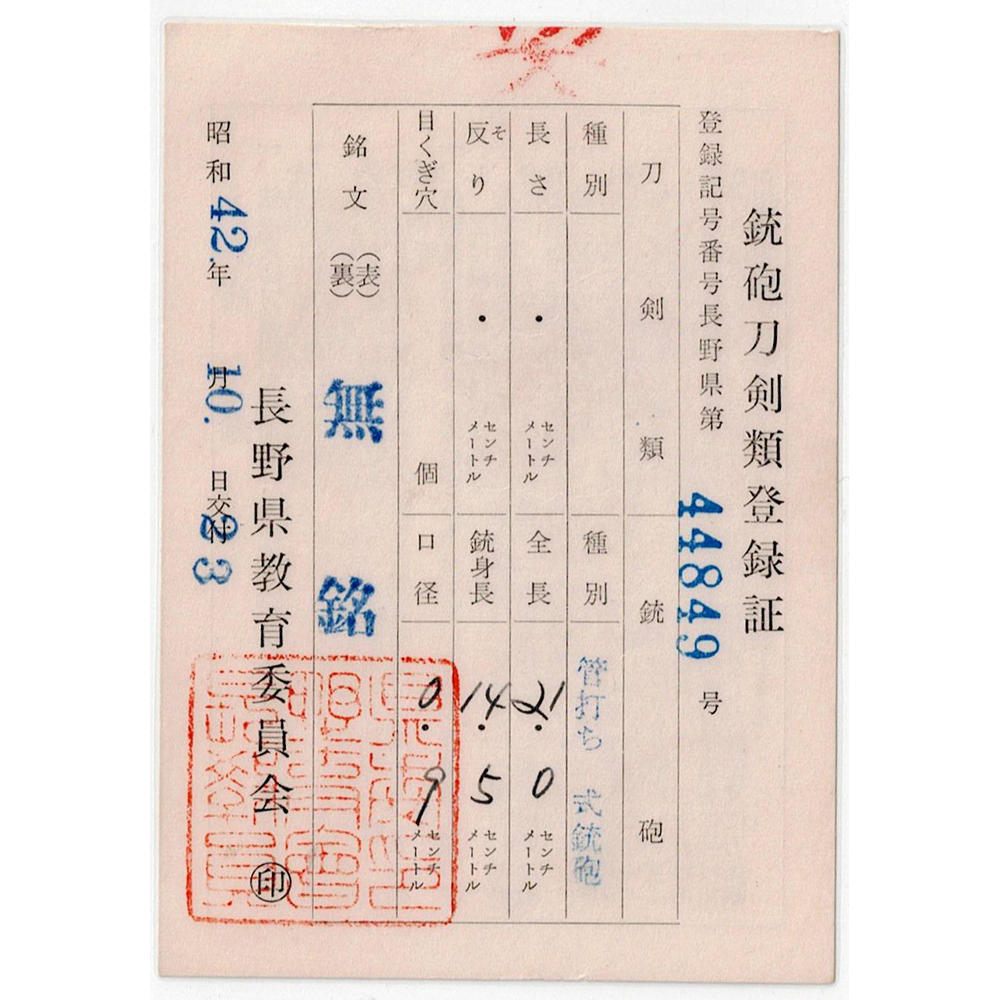 銃砲刀剣類登録証
登録記号番号長野県第 44849 号
刀剣類 銃砲
種別 種別 管打ち式銃砲
長さ ・ センチメートル 全長 21.0 センチメートル
反り そ ・ センチメートル 銃身長 14.5 センチメートル
目くぎ穴 個 口径 0.9 センチメートル
銘文 (表) (裏) 無銘
長野県教育委員会 ㊞
昭和 42. 年 10. 月 23 日交付